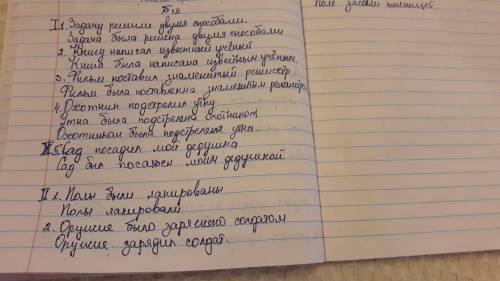 Поле засеяли пшеницей.
Б 18
I 1. Задачу решили двумя способами.
Задача была решена двумя способами
2. Книгу написал известный учёный
Книга была написана известным учёным.
3. Фильм поставил знаменитый режиссёр
Фильм был поставленна знаменитым режиссёром
4. Охотник подстрелил утку
Утка была подстрелена охотником
Охотником была подстрелена утка.
5. Сад посадил мой дедушка
Сад был посажен моим дедушкой
II 1. Полы были лакированы
Полы лакировали
2. Оружие было заряжено солдатом
Оружие зарядил солдат.